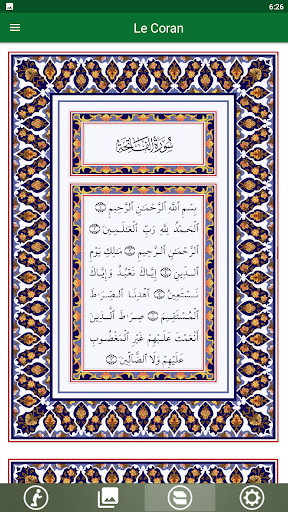 6:26
Le Coran
سُورَةُ الفَاتِحَةِ
بِسْمِ ٱللَّهِ ٱلرَّحْمَٰنِ ٱلرَّحِيمِ ۝
ٱلْحَمْدُ لِلَّهِ رَبِّ ٱلْعَٰلَمِينَ ۝
ٱلرَّحْمَٰنِ ٱلرَّحِيمِ ۝ مَٰلِكِ يَوْمِ
ٱلدِّينِ ۝ إِيَّاكَ نَعْبُدُ وَإِيَّاكَ
نَسْتَعِينُ ۝ ٱهْدِنَا ٱلصِّرَٰطَ
ٱلْمُسْتَقِيمَ ۝ صِرَٰطَ ٱلَّذِينَ
أَنْعَمْتَ عَلَيْهِمْ غَيْرِ ٱلْمَغْضُوبِ
عَلَيْهِمْ وَلَا ٱلضَّآلِّينَ ۝